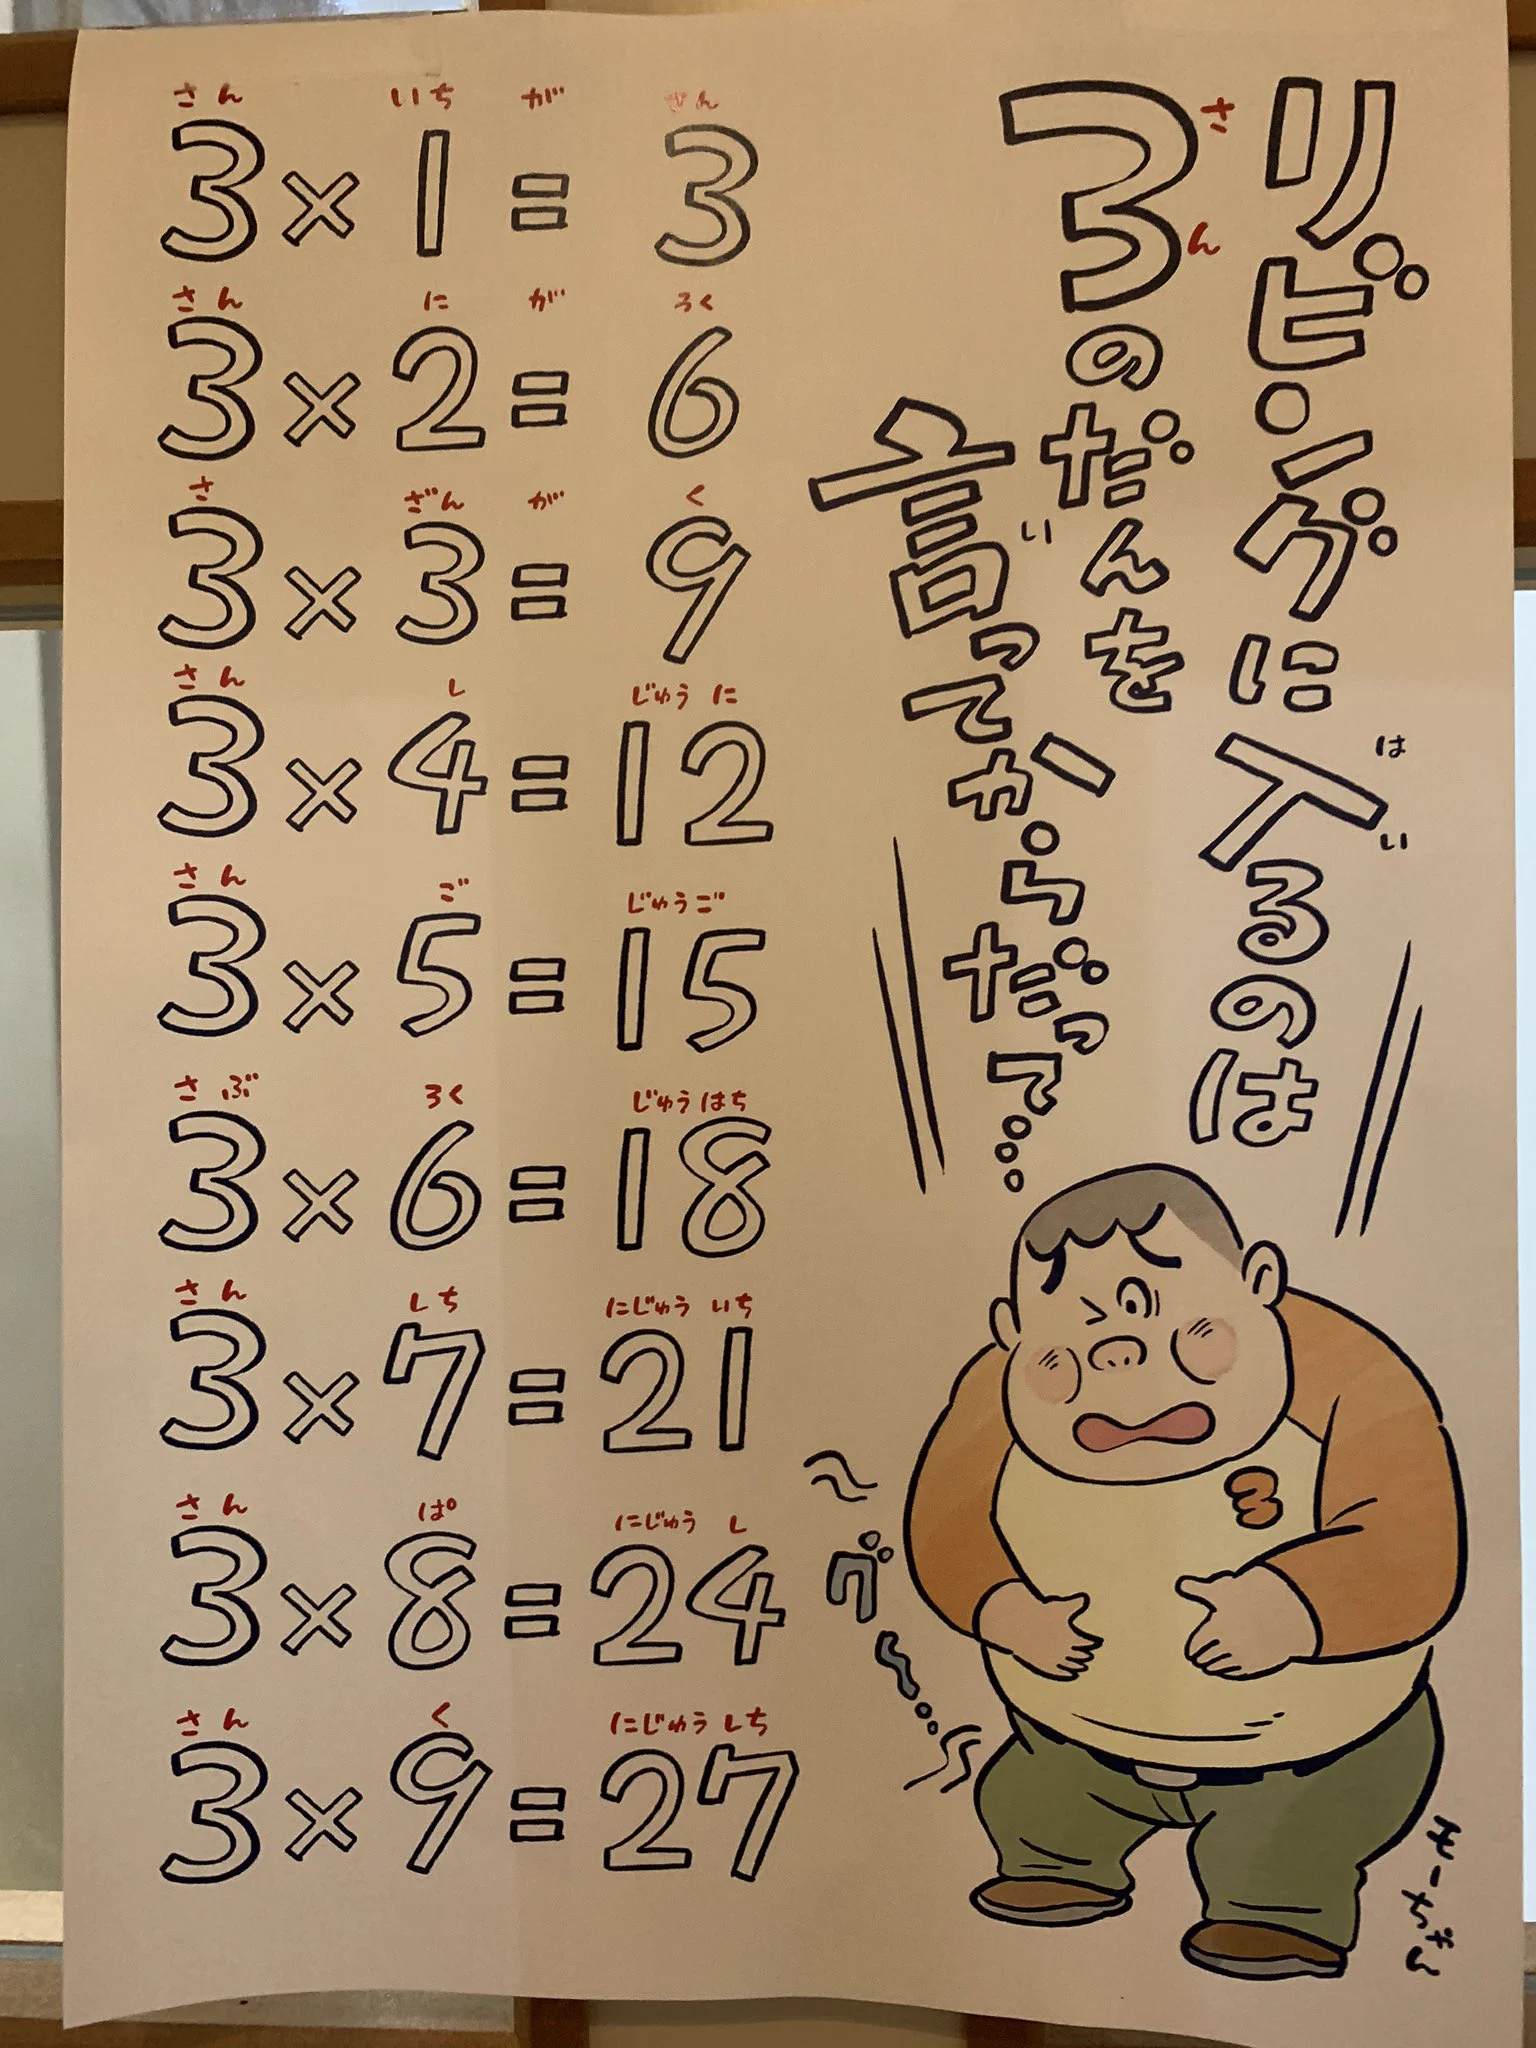 リビングに入るのは
はい
3のだんを
さん
言ってからだって…
い
さん いち が さん
3×1=3
さん に が ろく
3×2=6
さ ざん が く
3×3=9
さん し じゅうに
3×4=12
さん ご じゅうご
3×5=15
さぶ ろく じゅうはち
3×6=18
さん しち にじゅういち
3×7=21
さん ぱ にじゅうし
3×8=24
さん く にじゅうしち
3×9=27
グ〜…
モーちゃん